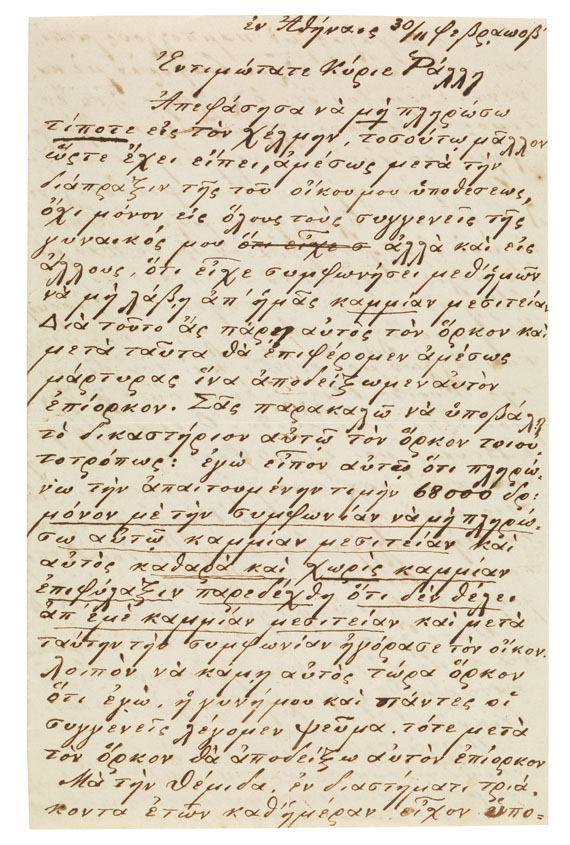 ἐν Ἀθήναις 30/11 Φεβρ. 1872
Ἐντιμώτατε Κύριε Ῥάλλη
Ἀπεφάσησα νὰ μὴ πληρώσω
τίποτε εἰς τὸν Χέλμην, τοσούτω μᾶλλον
ὥςτε ἔχει εἴπει, ἀμέσως μετὰ τὴν
διάπραξιν τῆς τοῦ οἴκου μου ὑποθέσεως,
ὄχι μόνον εἰς ὅλους τοὺς συγγενεῖς τῆς
γυναικός μου ὅτι εἶχε σ ἀλλὰ καὶ εἰς
ἄλλους, ὅτι εἶχε συμφωνήσει μεθ' ἡμῶν
νὰ μὴ λάβῃ ἀπ' ἡμᾶς καμμίαν μεσιτείαν
Διὰ τοῦτο ἄς πάρῃ αὐτὸς τὸν ὅρκον καὶ
μετὰ ταῦτα θὰ ἐπιφέρομεν ἀμέσως
μάρτυρας ἵνα ἀποδείξωμεν αὐτὸν
ἐπίορκον. Σᾶς παρακαλῶ νὰ ὑποβάλῃ
τὸ δικαστήριον αὐτῶ τὸν ὅρκον τοιου
τοτρόπως: ἐγὼ εἶπον αὐτῶ ὅτι πληρώ-
νω τὴν ἀπαιτουμένην τιμὴν 68000 δρ:
μόνον μὲ τὴν συμφωνίαν νὰ μὴ πληρώ-
σω αὐτῶ καμμίαν μεσιτείαν καὶ
αὐτὸς καθαρὰ καὶ χωρὶς καμμίαν
ἐπιφύλαξιν παρεδέχθη ὅτι δὲν θέλει
ἀπ' ἐμὲ καμμίαν μεσιτείαν καὶ μετὰ
ταύτην τὴν συμφωνίαν ἠγόρασε τὸν οἶκον.
λοιπὸν νὰ καμῃ αὐτὸς τώρα ὅρκον
ὅτι ἐγὼ, ἡ γυνή μου καὶ πάντες οἱ
συγγενεῖς λέγομεν ψεῦμα. τότε μετὰ
τὸν ὅρκον θὰ ἀποδείξω αὐτὸν ἐπίορκον
Μὰ τὴν Θέμιδα, ἐν διαστήματι τριά-
κοντα ἐτῶν καθ' ἡμέραν εἶχον ὑπο-